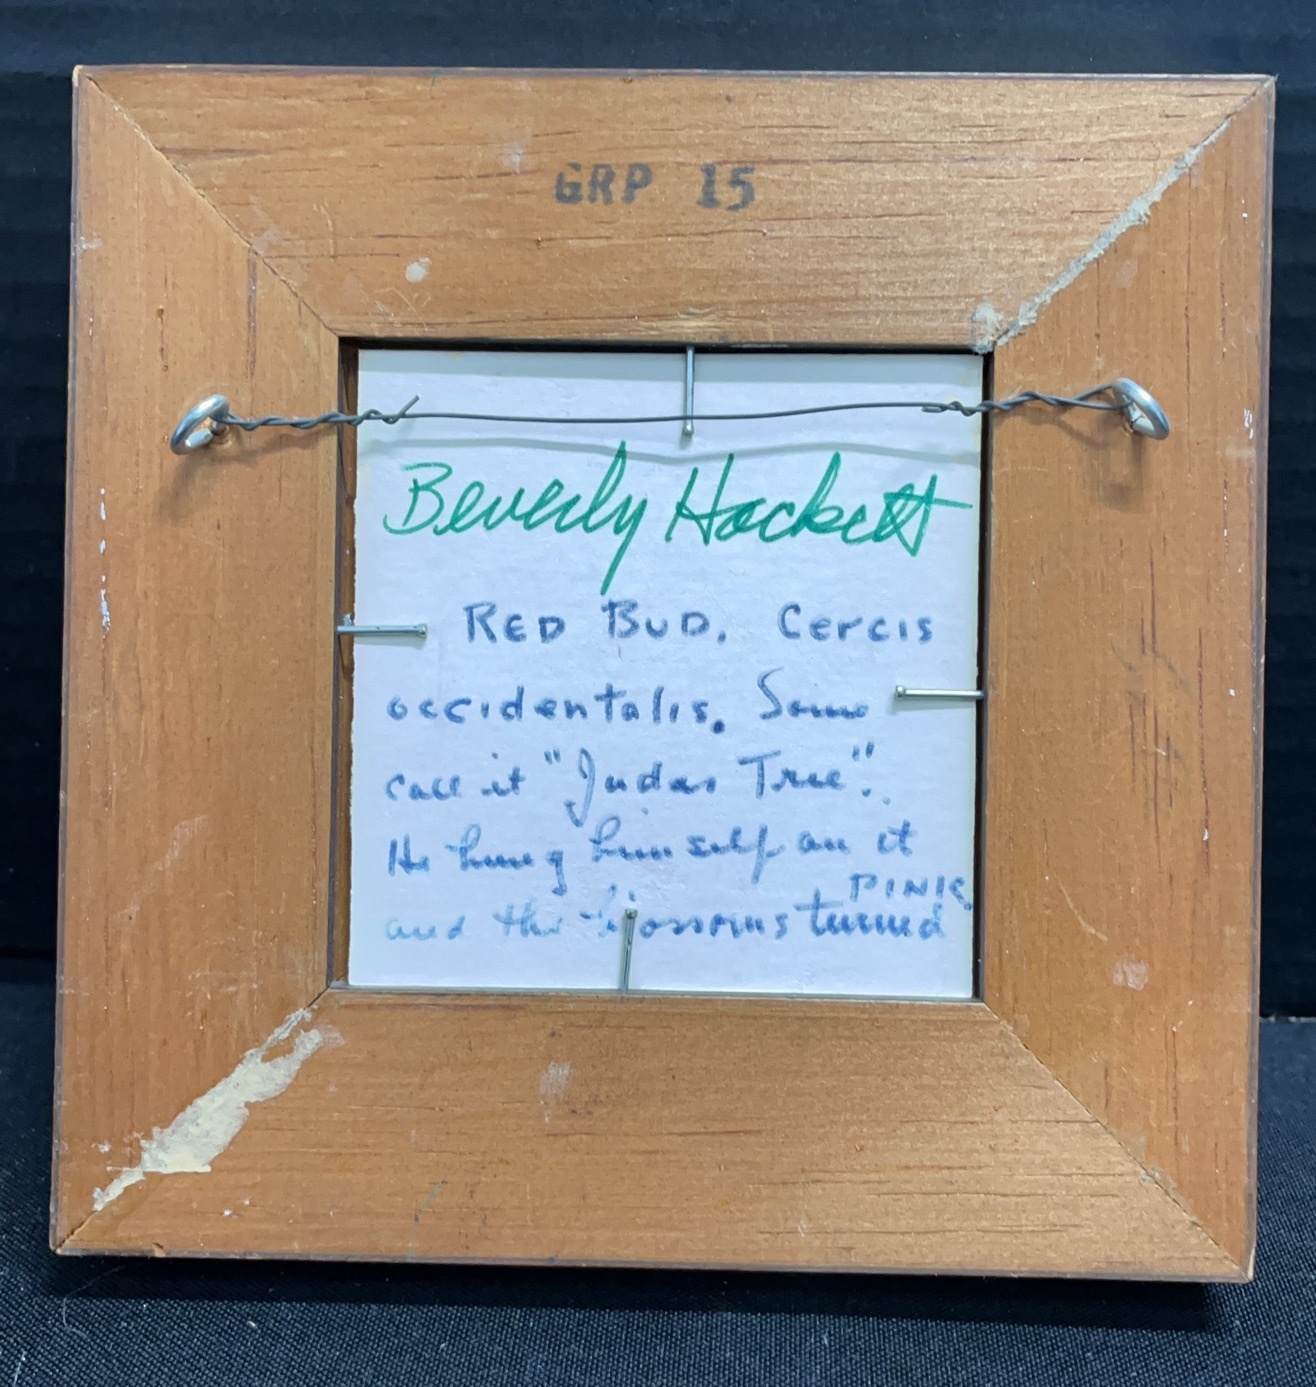 GRP 15
Beverly Hackett
RED BUD. Cercis
occidentalis. Some
call it "Judas Tree".
He hung himself on it
PINK
and the blossoms turned